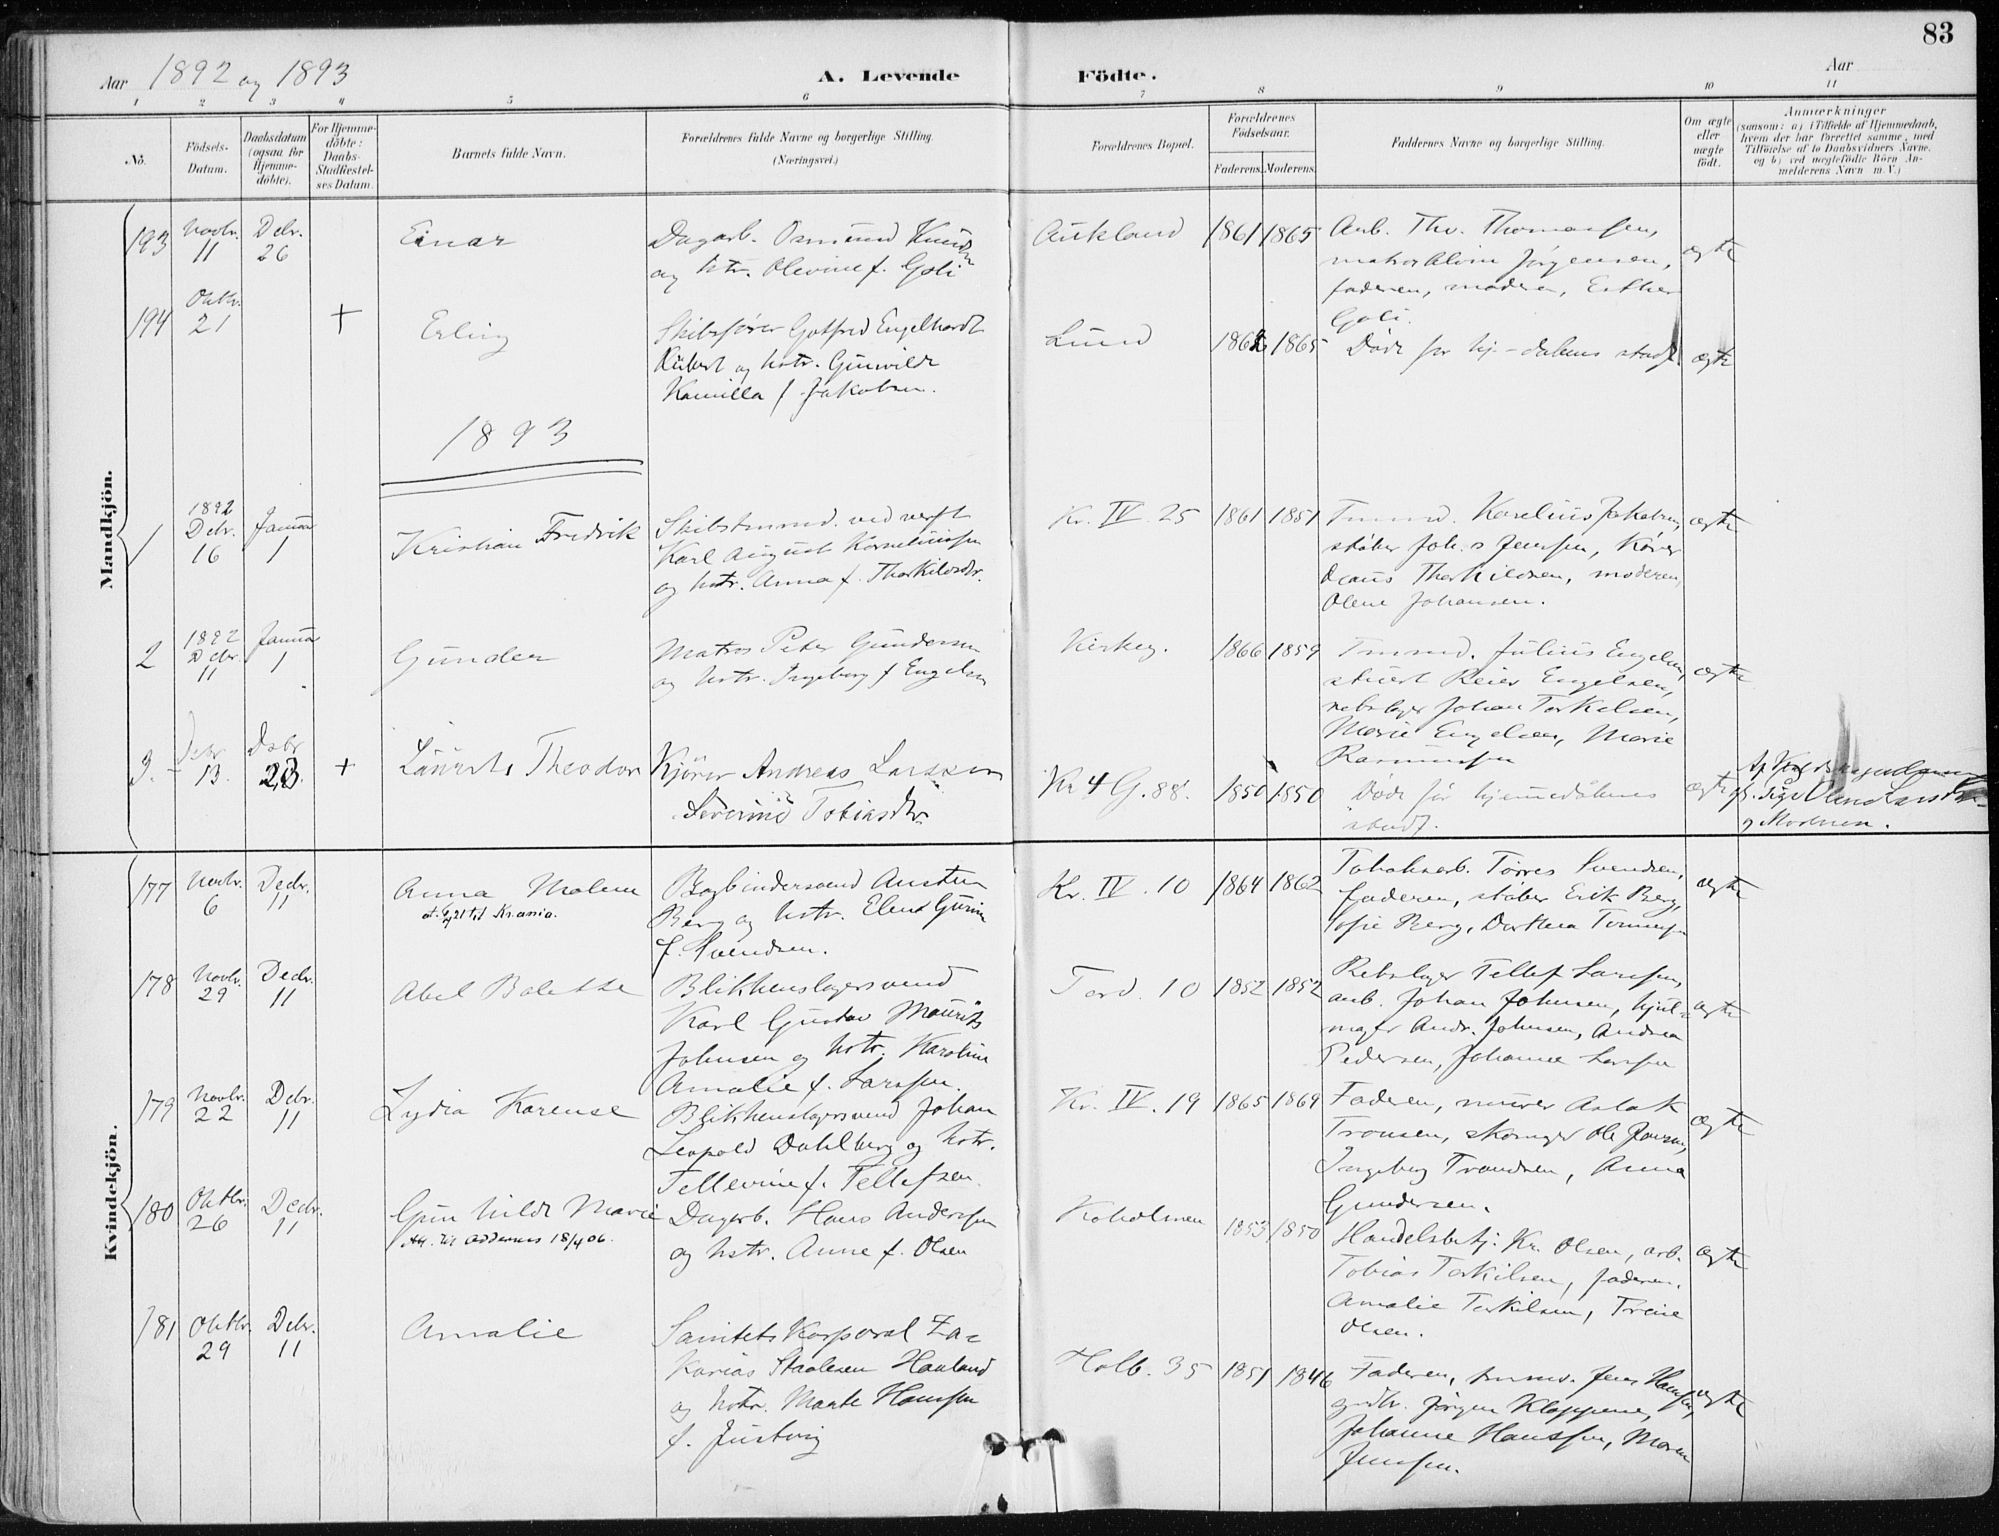 83
Aar 1892 og 1893
A. Levende Födte.
Aar
1 2 3 4 5 6 7 8 9 10 11
No.
Födsels-Datum.
Daabsdatum (ogsaa for Hjemme-döbte).
For Hjemme-döbte: Daabs-Stadfæstel-ses Datum.
Barnets fulde Navn.
Forældrenes fulde Navne og borgerlige Stilling.
(Næringsvei.)
Forældrenes Bopæl.
Forældrenes Födselsaar.
Faderens. Moderens.
Faddernes Navne og borgerlige Stilling.
Om ægte eller uægte födt.
Anmærkninger
(saasom: a) i Tilfælde af Hjemmedaab,
hvem der har forrettet samme, med
Tilföielse af to Daabsvidners Navne,
og b) ved uægtefödte Börn An-
melderens Navn m. V.)
Mandkjön.
193 Novbr. 11 Debr. 26
Einar
Dagarb. Osmund
og hstr. Olevine f. Goli
Aukland 1861 1865
Arb. Thv. Thomassen,
Jörgensen,
faderen, moderen, Esther
Goli.
ægte
194 Oktbr. 21 +
Erling
Skibsfører Gotfred Engelhardt
og hstr. Gunvilde
Kamilla f. Jakobsen.
Lund 1865
Döde før hj-daabens stadf.
ægte
1893
1 1892 Debr. 16 Januar 1
Kristian Fredrik
Skibstmmd. ved verft
Karl August Korneliussen
og hstr. Anna f. Thorkildsdtr.
Kr. IV. 25 1861 1851
Tmmd. Karelius Jakobsen,
støber Joh.s Jenssen,
Thorkildsen, moderen,
Olene Johansen.
ægte
2 1892 Debr. 11 Januar 1
Gunder
Matros Peter Gundersen
og hstr. Ingeborg f Engelsen
Kirkeg. 1866 1859
Tmmd. Julius Engelsen,
Reier Engelsen,
rebslager Johan Torkelsen,
Marie Engelsen, Marie
Rasmussen
ægte
3. Debr 13. Debr 23. +
Laurits Theodor
Kjörer Andreas Larssen
Severine Tobiasdtr
Kr 4 G. 88. 1850 1850
Döde før hjemmedåbens
stadf.
ægte
Larsdtr
og Moderen.
Kvindekjön.
177 Novbr. 6 Decbr. 11
Anna Malene
Bogbindersvend Austen
Berg og hstr. Elene Gurine
f. Svendsen.
Kr. IV. 10 1864 1862
Tobaksarb. Törres Svendsen,
faderen, støber Erik Berg,
Sofie Berg, Dorthea
ægte
178 Novbr. 29 Decbr. 11
Abel Bolette
Blikkenslagersvend
Karl Gustav Mauritz
Johnsen og hstr. Karoline
Amalie f. Larssen.
Tord. 10 1852 1852
Rebslager Tellef Larssen,
arb. Johan Johnsen, hjul-
mager Andr. Johnsen, Andrea
Pedersen, Johanne Larssen
ægte
179 Novbr. 22 Debr. 11
Lydia Karense
Blikkenslagersvend Johan
Leopold Dahlberg og hstr.
Tellevine f. Tellefsen
Kr. IV. 19 1865 1869
Faderen, murer Aslak
Tronsen, skomager Ole
Ingeborg Trondsen, Anna
Gundersen.
ægte
180 Oktbr. 26 Decbr. 11
Gunhilde Marie
Att. til Oddernes 18/4 06.
Dagarb. Hans Anderssen
og hstr. Anne f. Olsen
Koholmen 1853 1850
Handelsbetj. Kr. Olsen, arb.
Tobias Torkilsen, faderen,
Amalie Torkilsen, Trine
Olsen.
ægte
181 Oktbr. 29 Debr. 11
Amalie
Sanitetskorporal Za-
karias Staalesen Hauland
og hstr. Marte Hanssen
f. Justvig
Holb. 35 1851 1846
Faderen, tmmd. Jens Hanssen,
Jörgen Kloppene,
Johanne Hanssen, Maren
Jenssen.
ægte